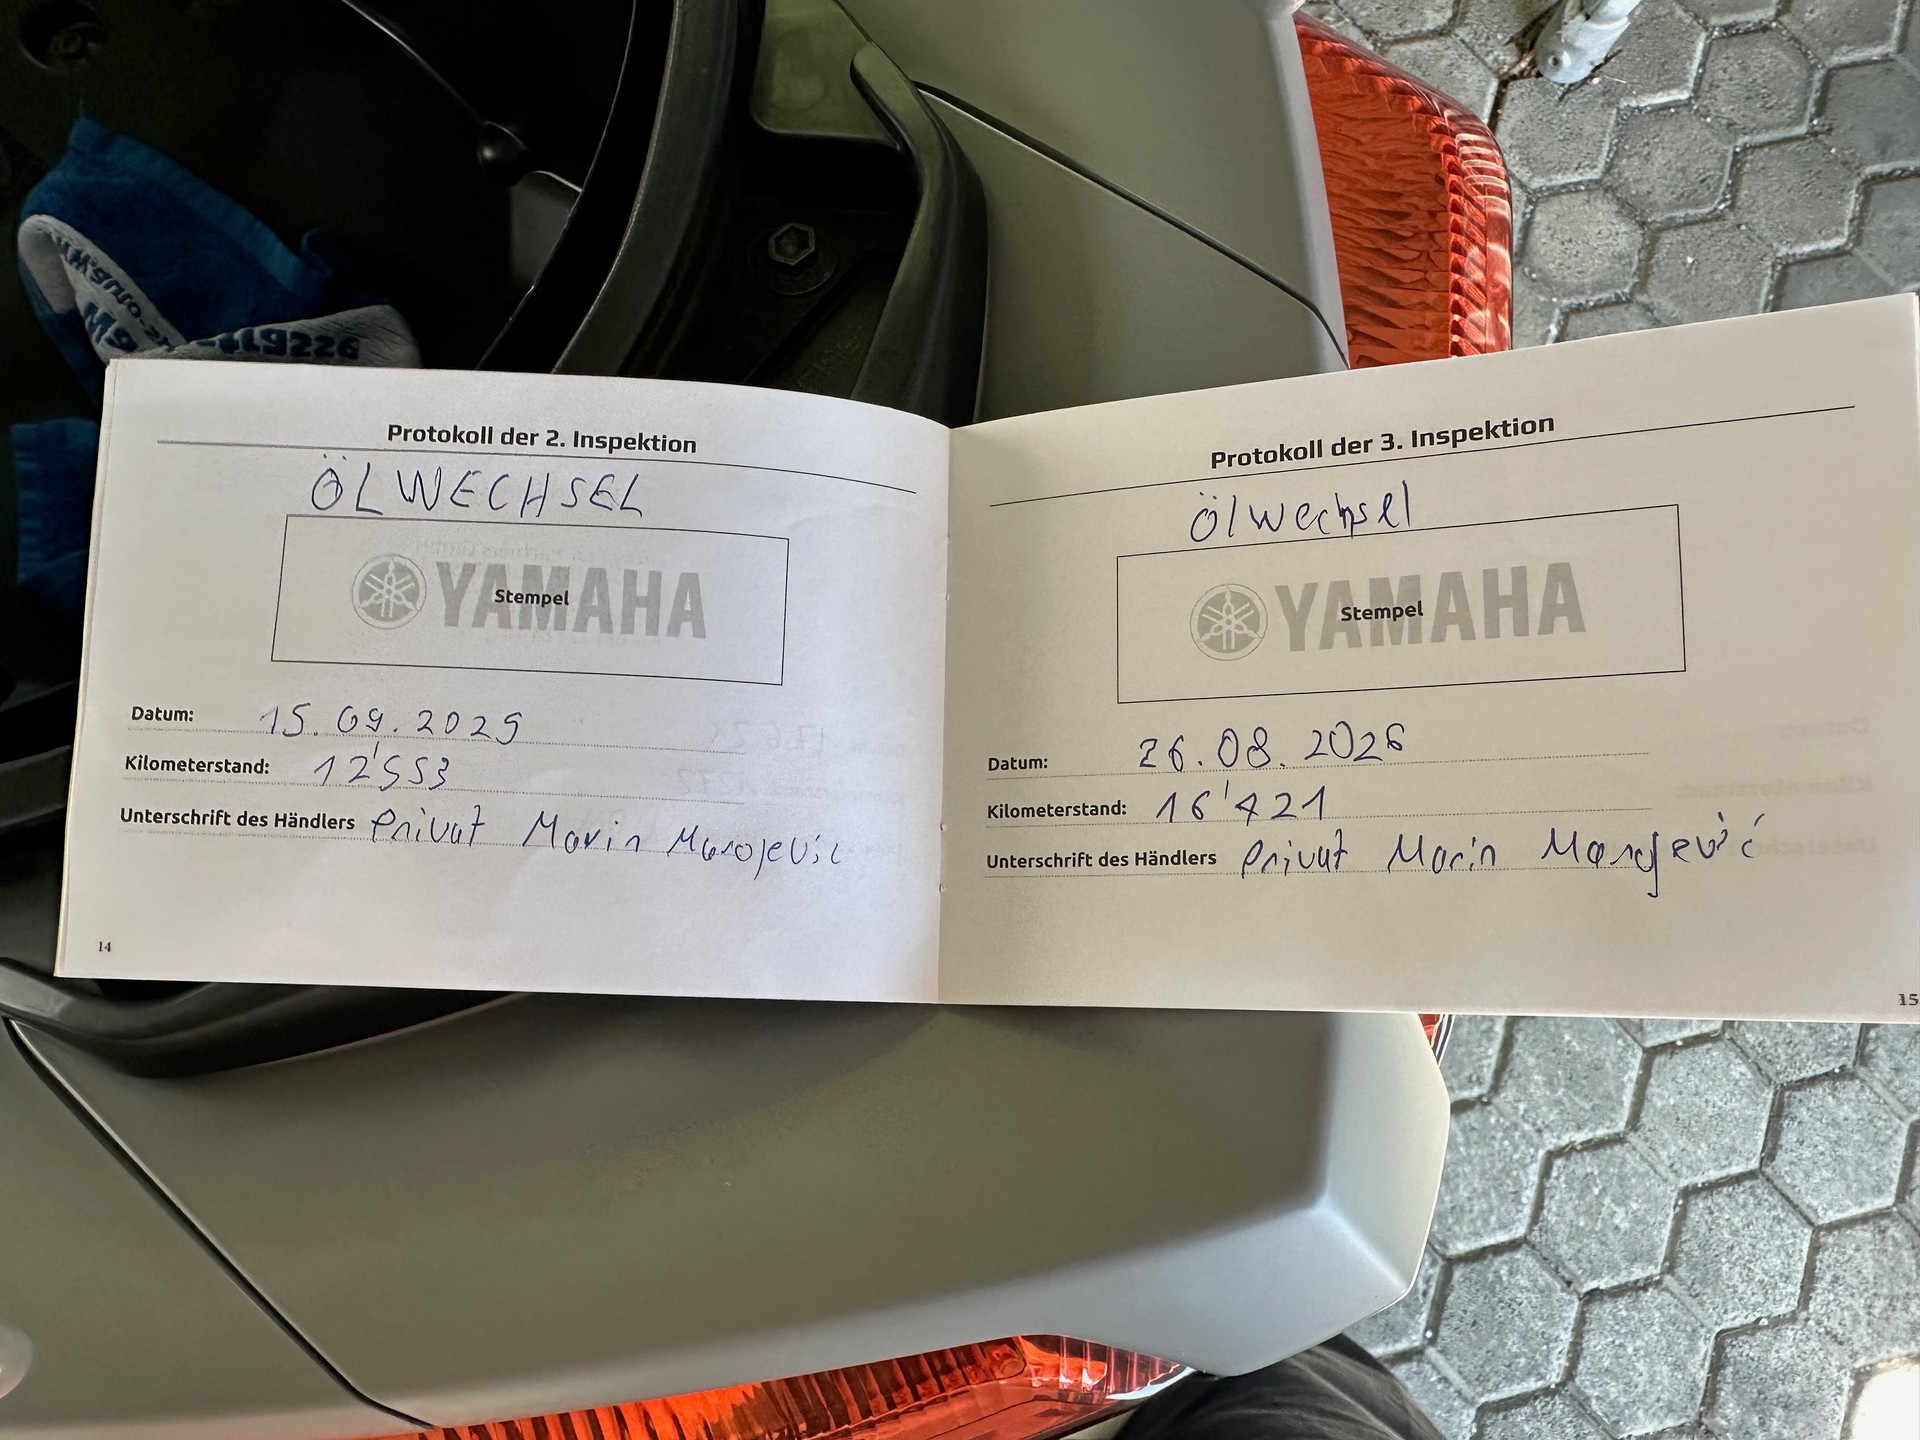 Protokoll der 2. Inspektion
ÖLWECHSEL
YAMAHA
Stempel
Datum: 15.09.2025
Kilometerstand: 12'553
Unterschrift des Händlers Privat Marin Marojević
14
Protokoll der 3. Inspektion
Ölwechsel
YAMAHA
Stempel
Datum: 26.08.2026
Kilometerstand: 16'421
Unterschrift des Händlers Privat Marin Marojević
15